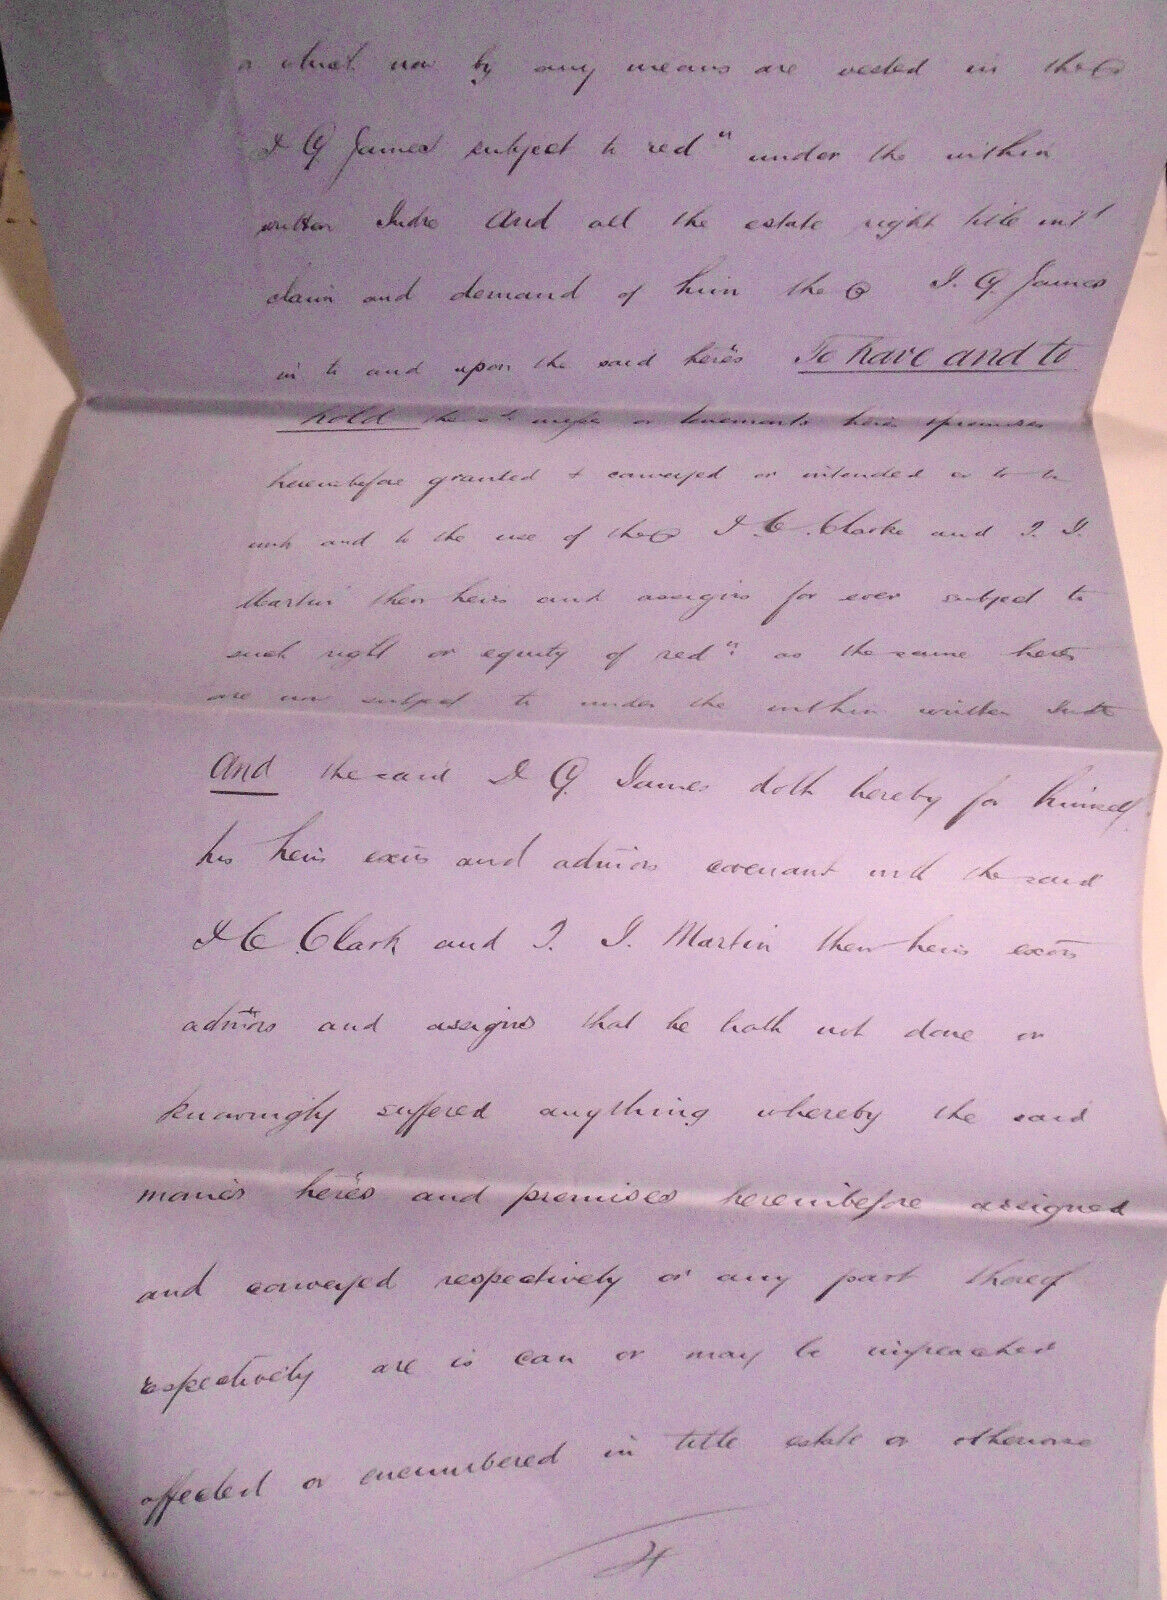 or which now by any means are vested in the sd
J G James subject to redn under the within
written Indre And all the estate right title intt
claim and demand of him the sd J. G. James
in to and upon the said heres To have and to
hold the sd messe or tenements heres & premises
hereinbefore granted & conveyed or intended so to be
unto and to the use of the sd J C. Clarke and T. J.
Martin their heirs and assigns for ever subject to
such right or equity of redn: as the same heres
are now subject to under the within written Indre
And the said J G. James doth hereby for himself
his heirs exŏrs and admŏrs covenant with the said
J C. Clark and T. J. Martin their heirs exŏrs
admŏrs and assigns that he hath not done or
knowingly suffered anything whereby the said
monies heres and premises hereinbefore assigned
and conveyed respectively or any part thereof
respectively are is can or may be impeached
affected or encumbered in title estate or otherwise